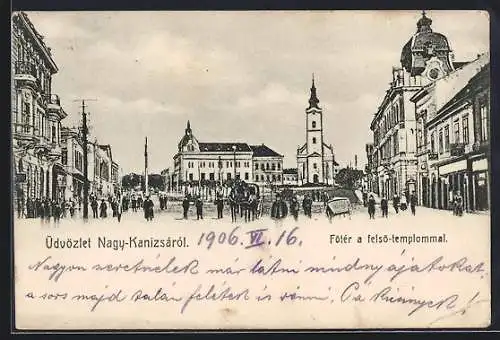 Üdvözlet Nagy-Kanizsáról. 1906. VI. 16. Főtér a felső-templommal.
Nagyon szeretnélek már látni mindnyájatokat
a sors majd talán felétek is